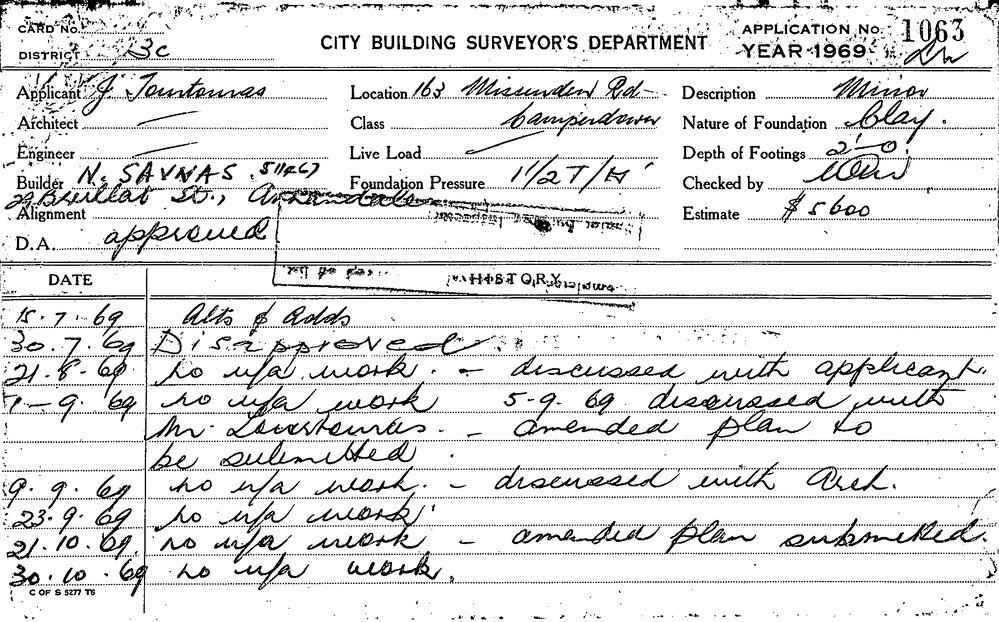 CARD No.
DISTRICT 3c
CITY BUILDING SURVEYOR'S DEPARTMENT
APPLICATION No. 1063
YEAR 1969
Applicant J. Tountouras
Location 163 Missenden Rd
Description Minor
Architect —
Class Camperdown
Nature of Foundation Clay.
Engineer —
Live Load
Depth of Footings 2'-0"
Builder N. SAVVAS. 511467
Foundation Pressure 1 1/2 T/
Checked by
29 Brillat St., Annandale
Alignment
Estimate $5600
D.A. approved
DATE
HISTORY
15.7.69 Alts & Adds
30.7.69 Disapproved.
21-8-69 no u/a work. - discussed with applicant.
1-9-69 no u/a work 5-9-69 discussed with
Mr. - amended plan to
be submitted.
9.9.69 no u/a work. - discussed with Arch.
23.9.69 no u/a work.
21.10.69. no u/a work - amended plan submitted.
30.10.69 no u/a work.
C OF S 5277 T6